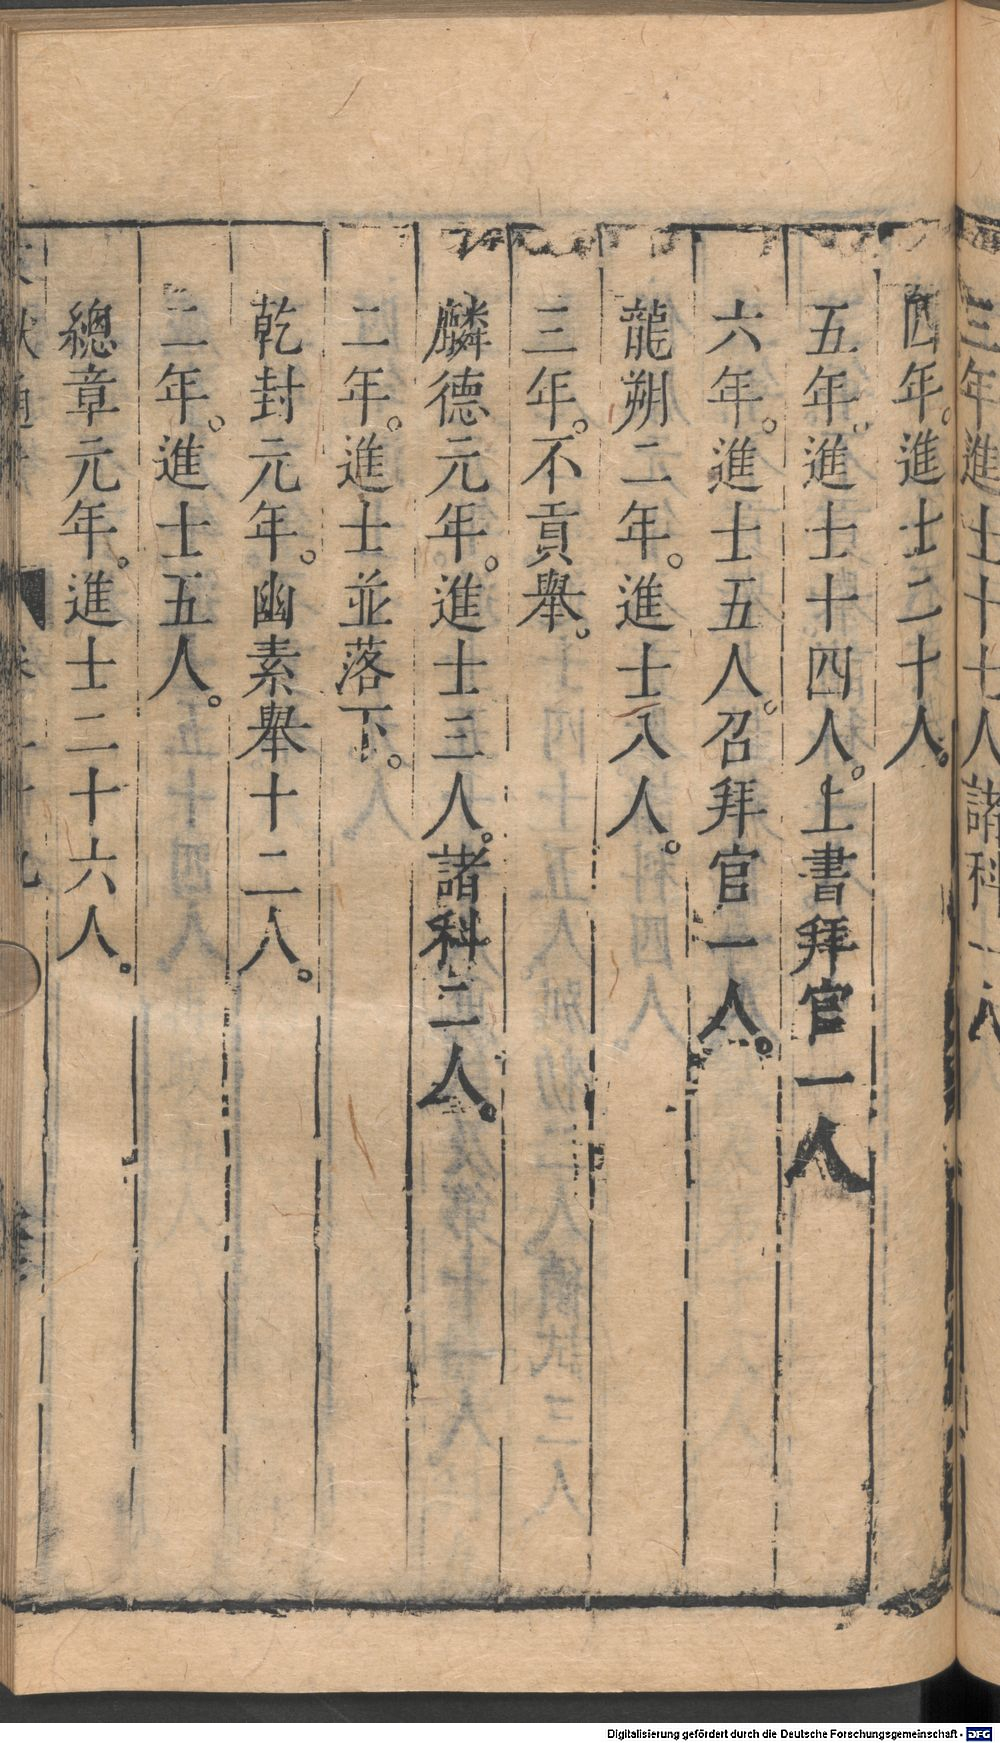 三年進士十七人諸科一人
四年。進士二十人。
五年。進士十四人。上書拜官一人
六年。進士五人。召拜官一人。
龍朔二年。進士八人。
三年。不貢舉。
麟德元年。進士三人。諸科二人。
二年。進士並落下。
乾封元年。幽素舉十二人。
二年。進士五人。
總章元年。進士二十六人。
Digitalisierung gefördert durch die Deutsche Forschungsgemeinschaft - DFG